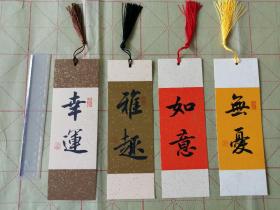 幸運
雅趣
如意
無憂